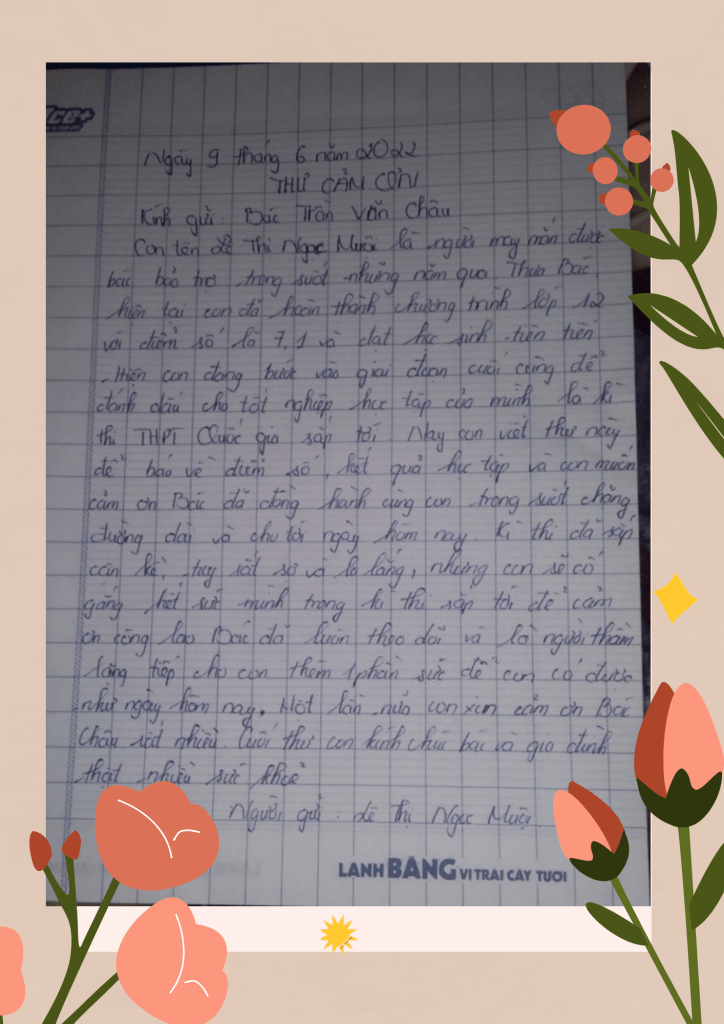 ice+
Ngày 9 tháng 6 năm 2022
THƯ CẢM ƠN
Kính gửi: Bác Trần Văn Châu
Con tên Lê Thị Ngọc Muội là người may mắn được
bác bảo trợ trong suốt những năm qua Thưa Bác,
hiện tại con đã hoàn thành chương trình lớp 12
với điểm số là 7,1 và đạt học sinh tiên tiến
Hiện con đang bước vào giai đoạn cuối cùng để
đánh dấu cho tột nghiệp học tập của mình là kì
thi THPT Quốc gia sắp tới. Nay con viết thư này
để báo về điểm số, kết quả học tập và con muốn
cảm ơn Bác đã đồng hành cùng con trong suốt chặng
đường dài và cho tới ngày hôm nay. Kì thi đã sắp
cận kề, tuy rất sợ và lo lắng, nhưng con sẽ cố
gắng hết sức mình trong kì thi sắp tới để cảm
ơn công lao Bác đã luôn theo dõi và là người thầm
lặng tiếp cho con thêm 1 phần sức để con có được
như ngày hôm nay. Một lần nữa con xin cảm ơn Bác
Châu rất nhiều. Cuối thư con kính chúc bác và gia đình
thật nhiều sức khoẻ
Người gửi: Lê Thị Ngọc Muội
LẠNH BĂNG VỊ TRÁI CÂY TƯƠI